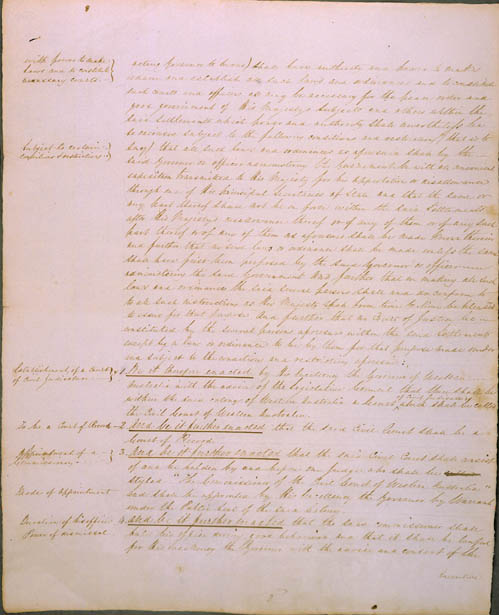 with power to make
laws and to establish
necessary courts.
acting Governor to have) shall have authority and power to make
ordain and establish all such laws and ordinances and to constitute
such courts and officers as may be necessary for the peace order and
good government of His Majesty's subjects and others within the
said Settlement which power and authority shall nevertheless be
exercised subject to the following conditions and restrictions that is to
Subject to certain
conditions & restrictions
say) that all such laws and ordinances as aforesaid shall by the
said Governor or officer administering the Government be with all convenient
expedition transmitted to His Majesty for his approbation or disallowance
through one of His Principal Secretaries of State and that the same or
any part thereof shall not be in force within the said Settlement
after His Majesty's disallowance thereof or of any of them or of any such
part thereof or of any of them as aforesaid shall be made known therein
and further that no such law or ordinance shall be made unless the same
shall have first been proposed by the said Governor or officer
administering the said Government And further that in making all such
laws and ordinances the said several persons shall conform
to all such instructions as His Majesty shall from time to time be pleased
to issue for that purpose And further that no Court of Justice be
constituted by the several persons aforesaid within the said Settlement
except by a law or ordinance to be by them for that purpose made
and subject to the conditions and restrictions aforesaid.
Establishment of a Court
of Civil Judicature.
1 Be it therefore enacted by His Excellency the Governor of Western
Australia with the advice of the Legislative Council that there shall be
within the said colony of Western Australia a Court of Civil Judicature which shall be called
the Civil Court of Western Australia.
To be a Court of Record
2. And be it further enacted that the said Civil Court shall be a
Court of Record.
Appointment of a
Commissioner.
3. And be it further enacted that the said Civil Court shall consist
of and be holden by and before one Judge who shall be
styled "The Commissioner of the Civil Court of Western Australia"
Mode of Appointment
and shall be appointed by His Excellency the Governor by Warrant
under the Public Seal of the said colony.
Duration of his office
Power of removal.
4. And be it further enacted that the said Commissioner shall
hold his office during good behaviour and that it shall be lawful
for His Excellency the Governor with the advice and consent of the
Executive
2